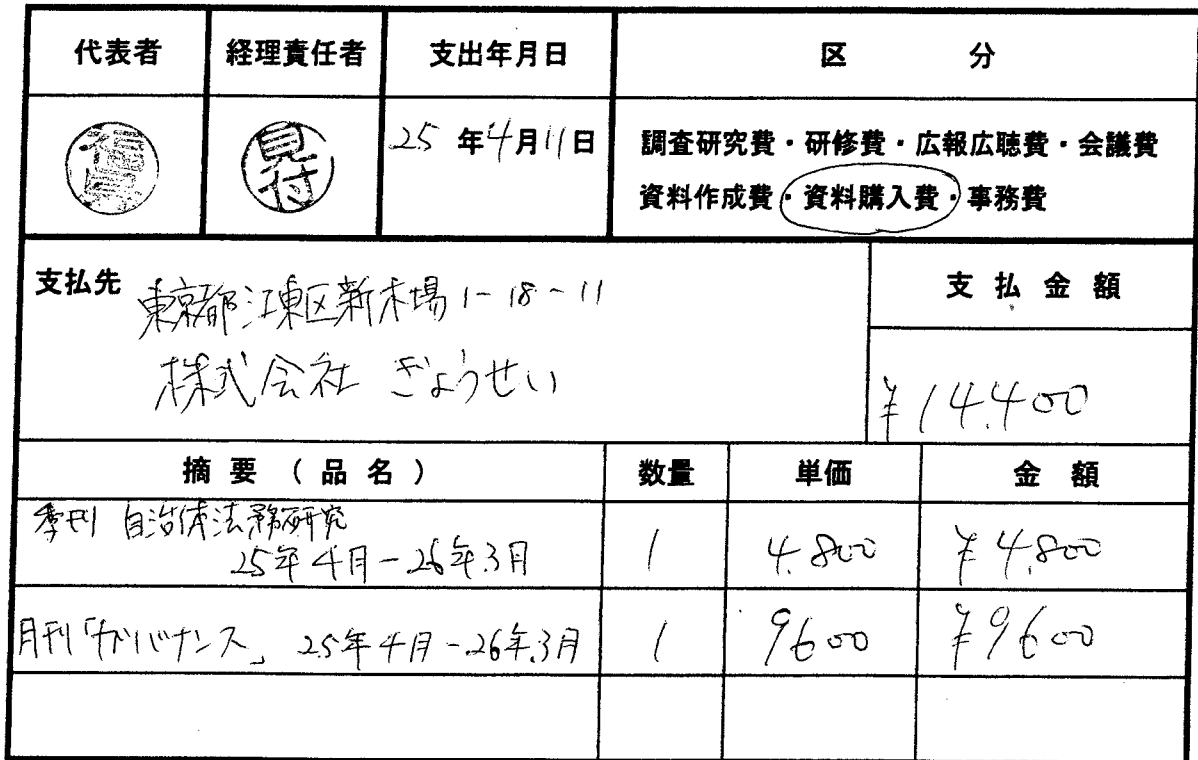 代表者 経理責任者 支出年月日 区 分
見付 25 年 4 月 11 日 調査研究費・研修費・広報広聴費・会議費
資料作成費・資料購入費・事務費
支払先 東京都江東区新木場1-18-11
株式会社 ぎょうせい
支払金額
¥14,400
摘要(品名) 数量 単価 金額
季刊 自治体法務研究
25年4月-26年3月 1 4,800 ¥4,800
月刊「ガバナンス」 25年4月-26年3月 1 9600 ¥9600